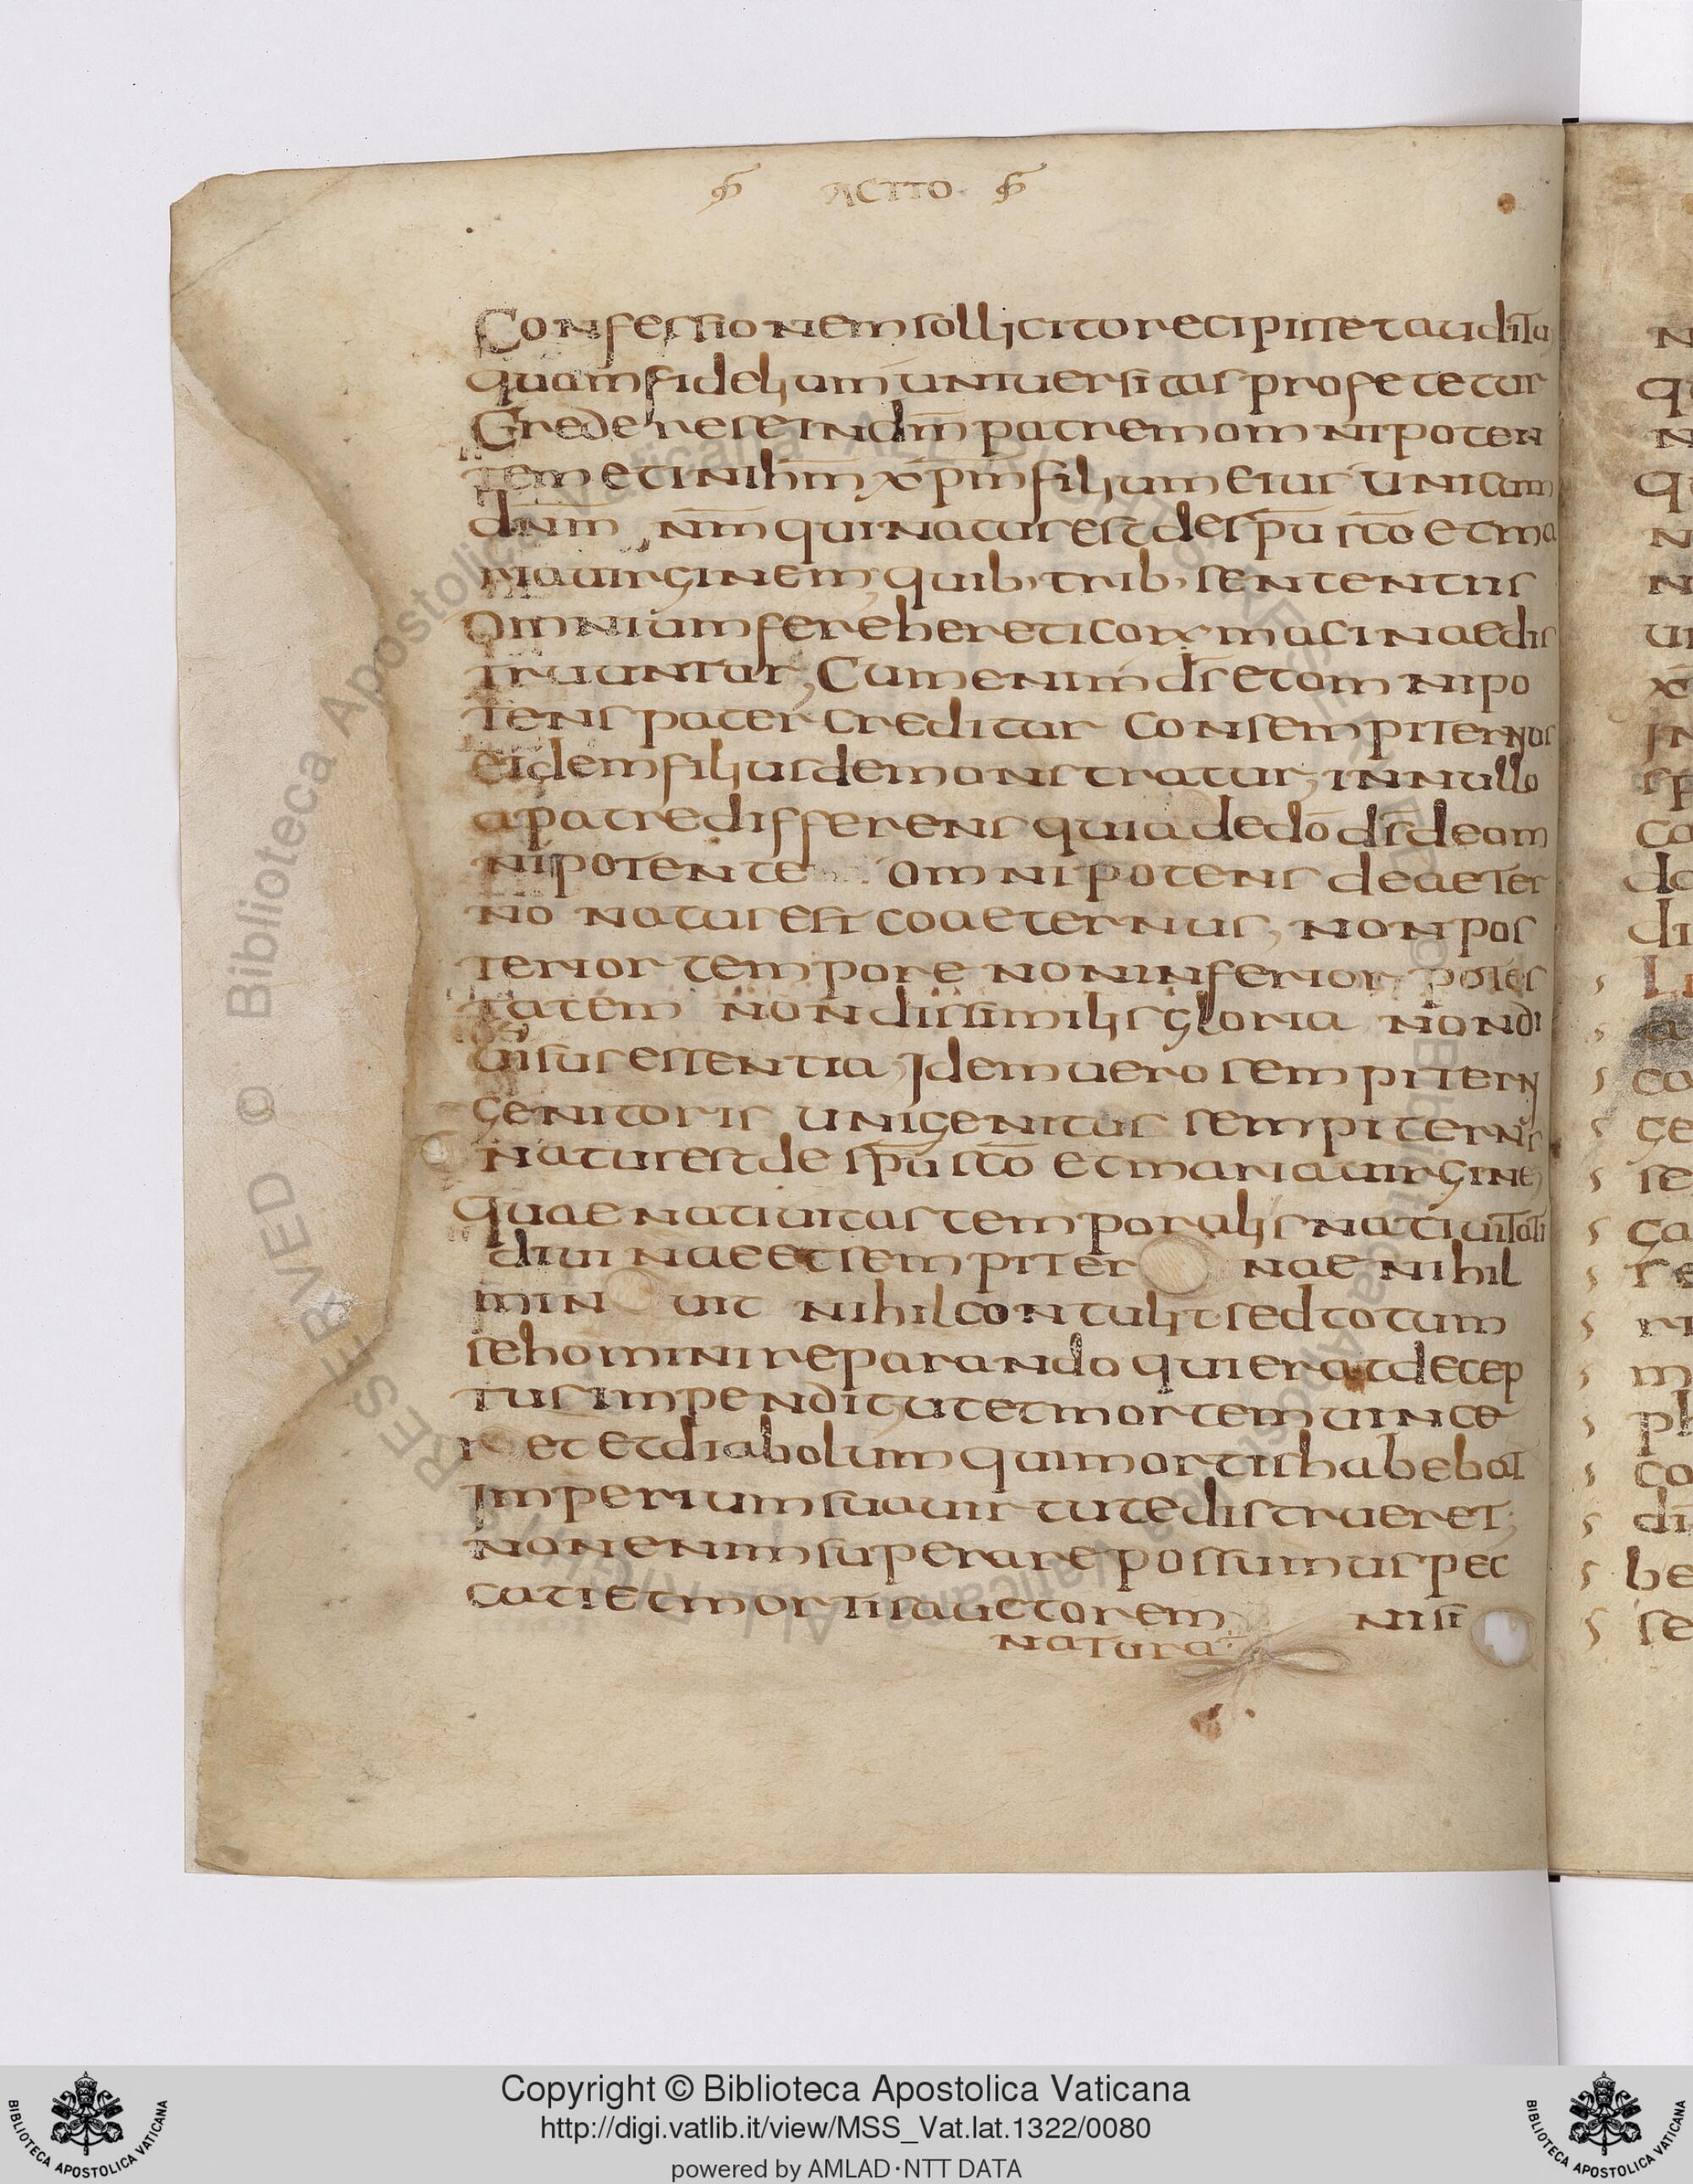 ACTIO
Confessionem sollicito recipisset auditu
quam fidelium universitas profetetur
Credere se in dm̅ patrem omnipoten
tem et in ihm̅ xp̅m filium eius unicum
dn̅m nm̅ qui natus est de sp̅u sc̅o et ma
ria uirginem, quib, trib, sententiis
omnium fere hereticorꝝ macinae dis
truuntur, Cum enim ds̅ et omnipo
tens pater creditur consempiternus
eidem filius demonstratur, in nullo
a patre differens quia de do̅ ds̅ de om
nipotente omnipotens de aeter
no natus est coaeternus, non pos
terior tempore non inferior potes
tatem non dissimilis gloria non di
uisus essentia, Idem uero sempiterni
genitoris unigenitus sempiternus
natus est de sp̅u sc̅o et maria uirgine,
quae natiuitas temporalis natiuitati
diuinae et sempiter nae nihil
min uit nihil contulit sed totum
se homini reparando qui erat decep
tus impendit, ut et mortem uince
r et et diabolum qui mortis habebat
Imperium sua uirtute distrueret;
non enim superare possumus pec
cati et mortis auctorem nisi
natura
Copyright © Biblioteca Apostolica Vaticana
http://digi.vatlib.it/view/MSS_Vat.lat.1322/0080
powered by AMLAD·NTT DATA